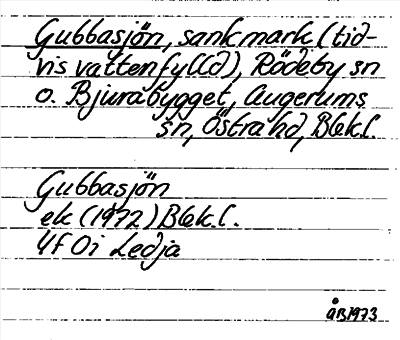 Gubbasjön, sankmark (tid-
vis vattenfylld), Rödeby sn
o. Bjurabygget, Augerums
sn, Östra hd, Blek.l.
Gubbasjön
ek (1972) Blek.l.
4F 0i Ledja
ÅB1973